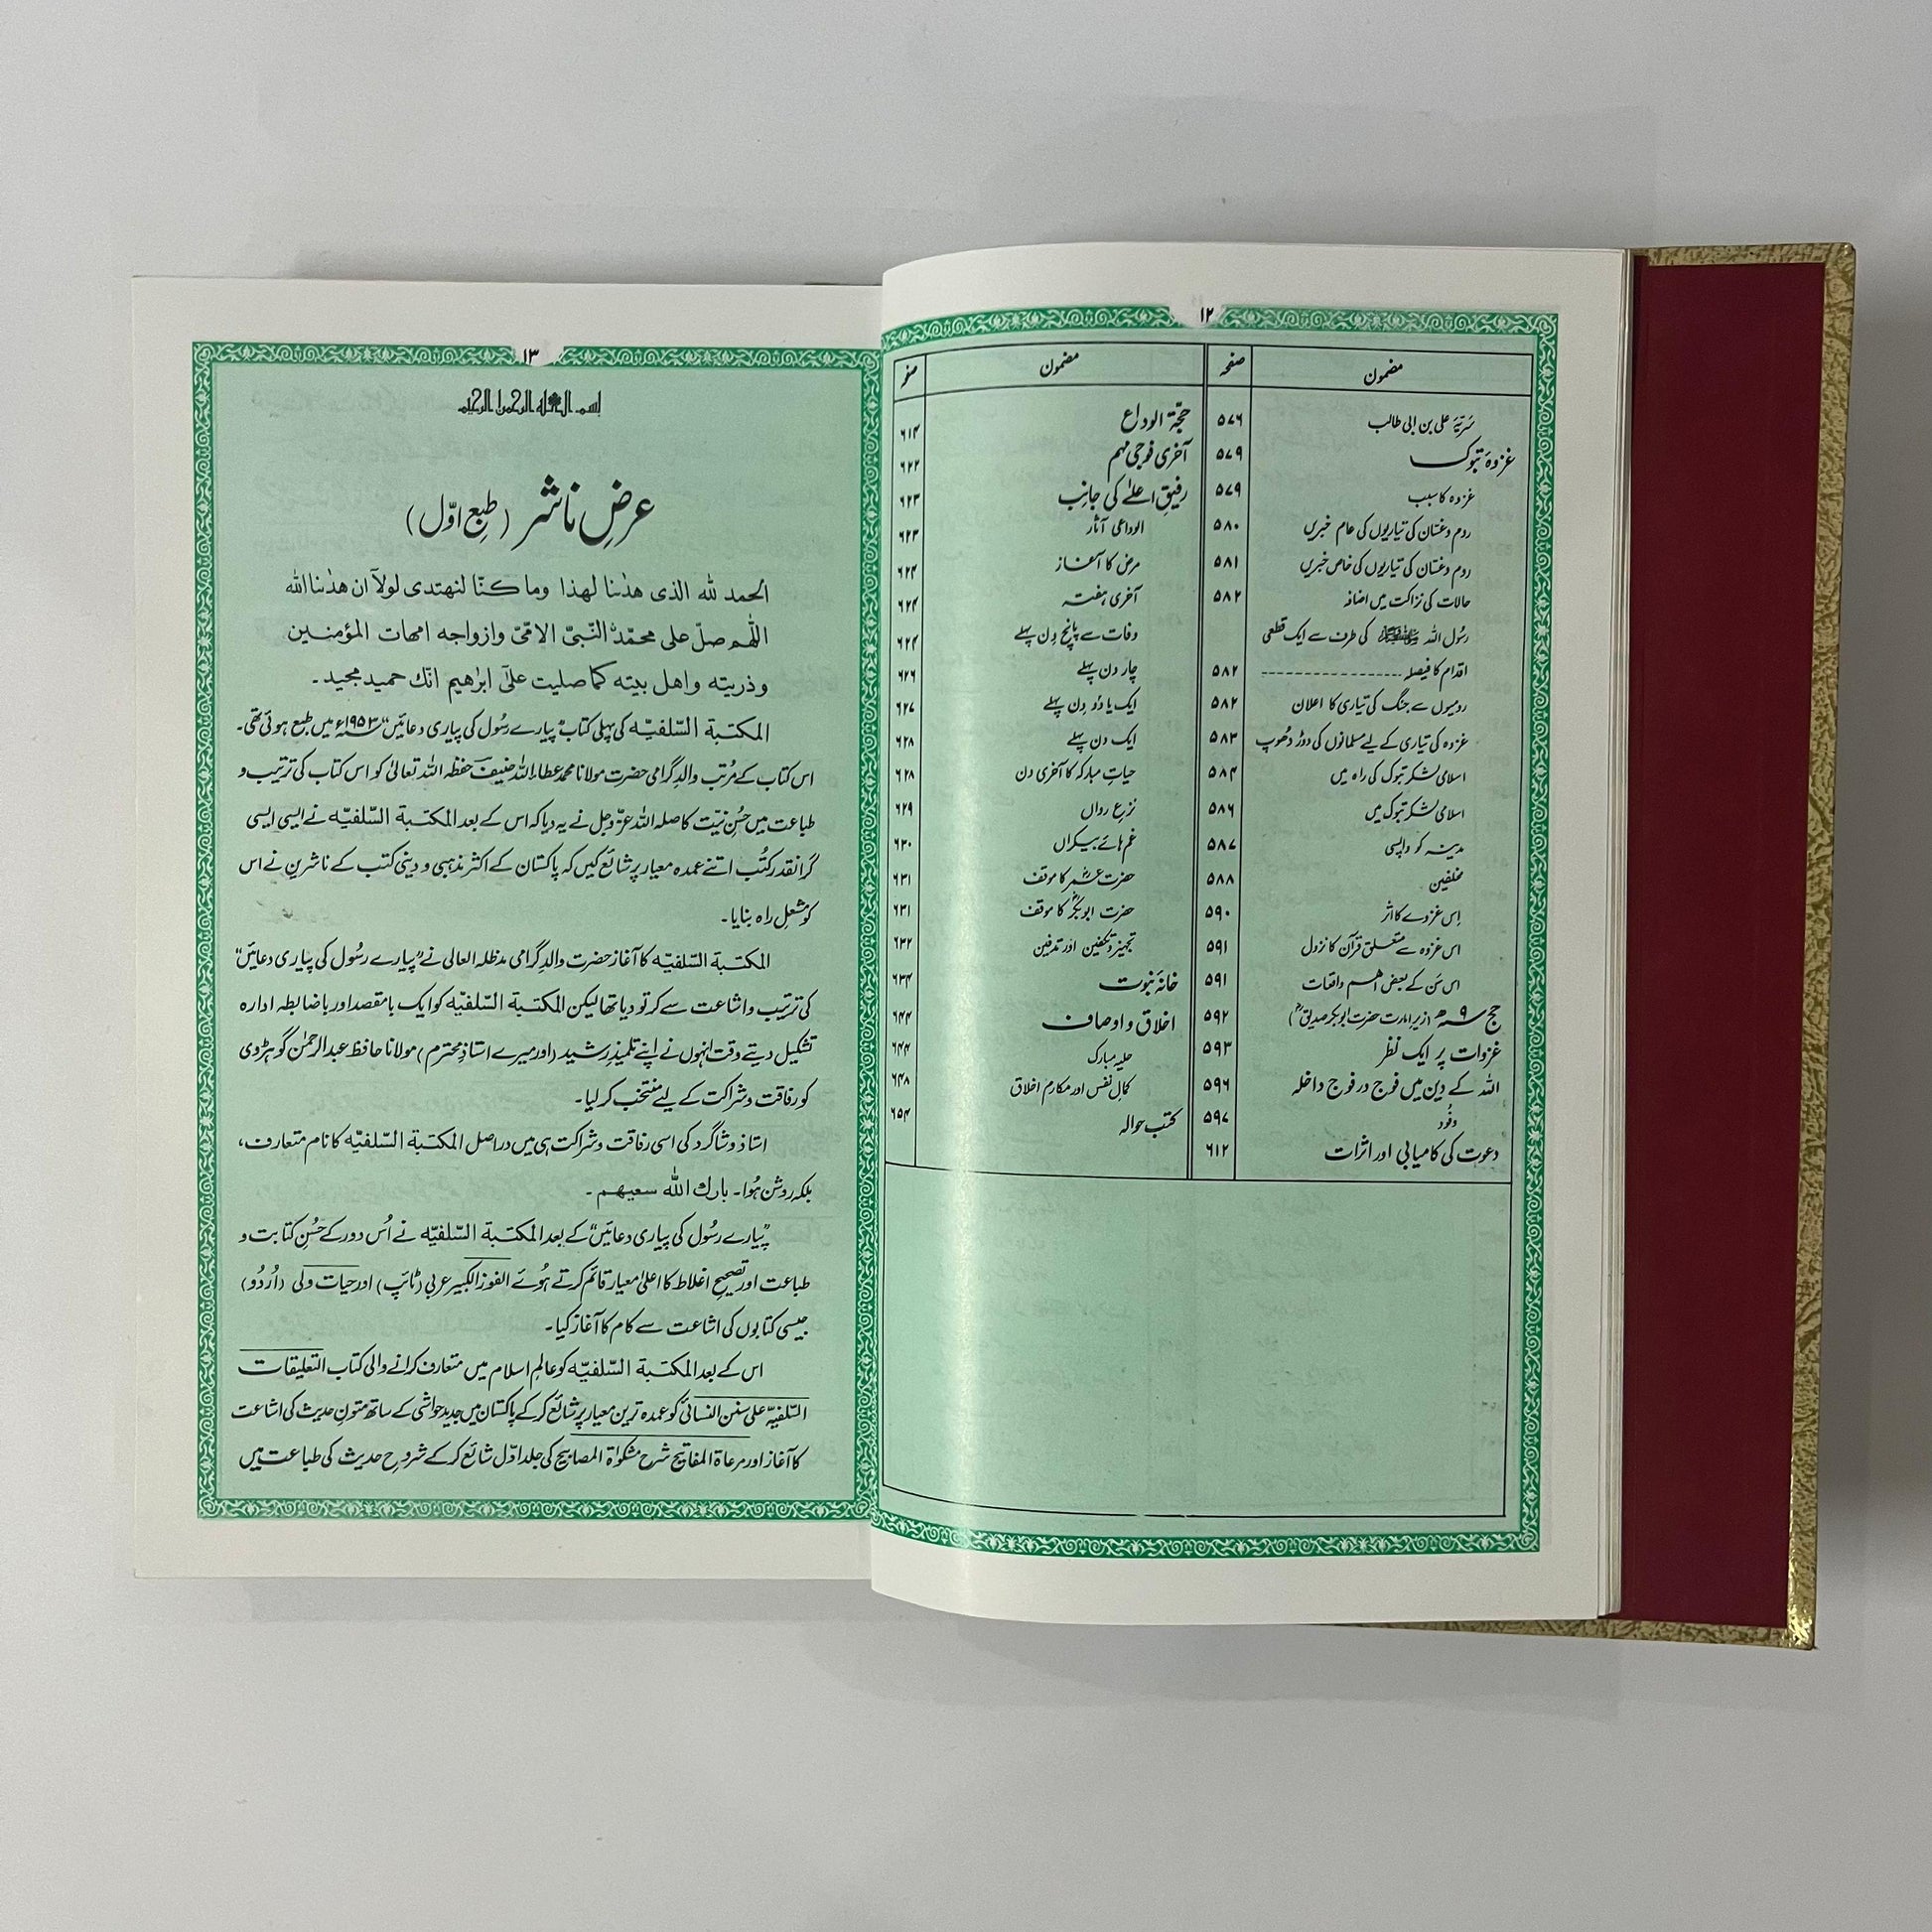 ۱۲
مضمون صفحہ
سَرِیّۂ علی بن ابی طالب ۵۷۶
غزوۂ تبوک ۵۷۹
غزوہ کا سبب ۵۷۹
روم و غسّان کی تیاریوں کی عام خبریں ۵۸۰
روم و غسّان کی تیاریوں کی خاص خبریں ۵۸۱
حالات کی نزاکت میں اضافہ ۵۸۲
رسُول اللہ ﷺ کی طرف سے ایک قطعی
اقدام کا فیصلہ ۵۸۲
رومیوں سے جنگ کی تیاری کا اعلان ۵۸۲
غزوہ کی تیاری کے لیے مسلمانوں کی دوڑ دھوپ ۵۸۳
اسلامی لشکر تبوک کی راہ میں ۵۸۴
اسلامی لشکر تبوک میں ۵۸۶
مدینہ کو واپسی ۵۸۷
مخلفین ۵۸۸
اِس غزوے کا اثر ۵۹۰
اس غزوہ سے متعلق قرآن کا نزول ۵۹۱
اس سَن کے بعض اہم واقعات ۵۹۱
حج ۹ھ (زیر امارت حضرت ابوبکر صدیقؓ) ۵۹۲
غزوات پر ایک نظر ۵۹۳
اللہ کے دِین میں فوج در فوج داخلہ ۵۹۶
وفُود ۵۹۷
دعوت کی کامیابی اور اثرات ۶۱۲
مضمون صفحہ
حجۃ الوداع ۶۱۴
آخری فوجی مہم ۶۲۲
رفیقِ اعلےٰ کی جانب ۶۲۳
الوداعی آثار ۶۲۳
مرض کا آغاز ۶۲۴
آخری ہفتہ ۶۲۴
وفات سے پانچ دِن پہلے ۶۲۴
چار دن پہلے ۶۲۶
ایک یا دو دِن پہلے ۶۲۷
ایک دن پہلے ۶۲۸
حیاتِ مبارکہ کا آخری دن ۶۲۸
نزعِ رواں ۶۲۹
غم ہائے بیکراں ۶۳۰
حضرت عمرؓ کا موقف ۶۳۱
حضرت ابوبکرؓ کا موقف ۶۳۱
تجہیز و تکفین اور تدفین ۶۳۲
خانۂ نبوت ۶۳۴
اخلاق و اوصاف ۶۴۴
حلیہ مبارک ۶۴۴
کمالِ نفس اور مکارم اخلاق ۶۴۸
کتب حوالہ ۶۵۴
۱۳
بسم اللہ الرحمن الرحیم
عرضِ ناشر (طبع اوّل)
الحمد للہ الذی ھدٰنا لھذا وما کنّا لنھتدی لولآ ان ھدٰنا اللہ
اللّٰھم صلّ علی محمّدۨ النّبیّ الامّیّ وازواجہ امھات المؤمنین
وذریتہ واھل بیتہ کما صلیت علیٰٓ ابراھیم انّك حمید مجید۔
المکتبة السّلفیّه کی پہلی کتاب ”پیارے رسُول کی پیاری دعائیں“ ۱۹۵۳ء میں طبع ہوئی تھی۔
اس کتاب کے مرُتب والدِ گرامی حضرت مولانا محمد عطاء اللہ حنیف حفظہ اللہ تعالیٰ کو اس کتاب کی ترتیب و
طباعت میں حسُنِ نیّت کا صلہ اللہ عزّ وجل نے یہ دیا کہ اس کے بعد المکتبة السّلفیّه نے ایسی ایسی
گرانقدر کتُب اتنے عمدہ معیار پر شائع کیں کہ پاکستان کے اکثر مذہبی و دینی کتب کے ناشرین نے اس
کو مشعلِ راہ بنایا۔
المکتبة السّلفیّه کا آغاز حضرت والدِ گرامی مدظلہ العالی نے ”پیارے رسُول کی پیاری دعائیں“
کی ترتیب و اشاعت سے کر تو دیا تھا لیکن المکتبة السّلفیّه کو ایک بامقصد اور باضابطہ ادارہ
تشکیل دیتے وقت انہوں نے اپنے تلمیذِ رشید (اور میرے استاذِ محترم) مولانا حافظ عبدالرحمٰن گوہڑوی
کو رفاقت و شراکت کے لیے منتخب کر لیا۔
استاذ و شاگرد کی اسی رفاقت و شراکت ہی میں دراصل المکتبة السّلفیّه کا نام متعارف،
بلکہ روشن ہُوا۔ بارك اللّٰه سعیھم۔
”پیارے رسُول کی پیاری دعائیں“ کے بعد المکتبة السّلفیّه نے اُس دور کے حسُنِ کتابت و
طباعت اور تصحیحِ اغلاط کا اعلیٰ معیار قائم کرتے ہُوئے الفوز الکبیر عربی (ٹائپ) اور حیات ولی (اُردُو)
جیسی کتابوں کی اشاعت سے کام کا آغاز کیا۔
اس کے بعد المکتبة السّلفیّه کو عالمِ اسلام میں متعارف کرانے والی کتاب التعلیقات
السّلفیہ علیٰ سنن النسائی کو عمدہ ترین معیار پر شائع کر کے پاکستان میں جدید حواشی کے ساتھ متونِ حدیث کی اشاعت
کا آغاز اور مرعاة المفاتیح شرح مشکوٰة المصابیح کی جلد اوّل شائع کر کے شروحِ حدیث کی طباعت میں